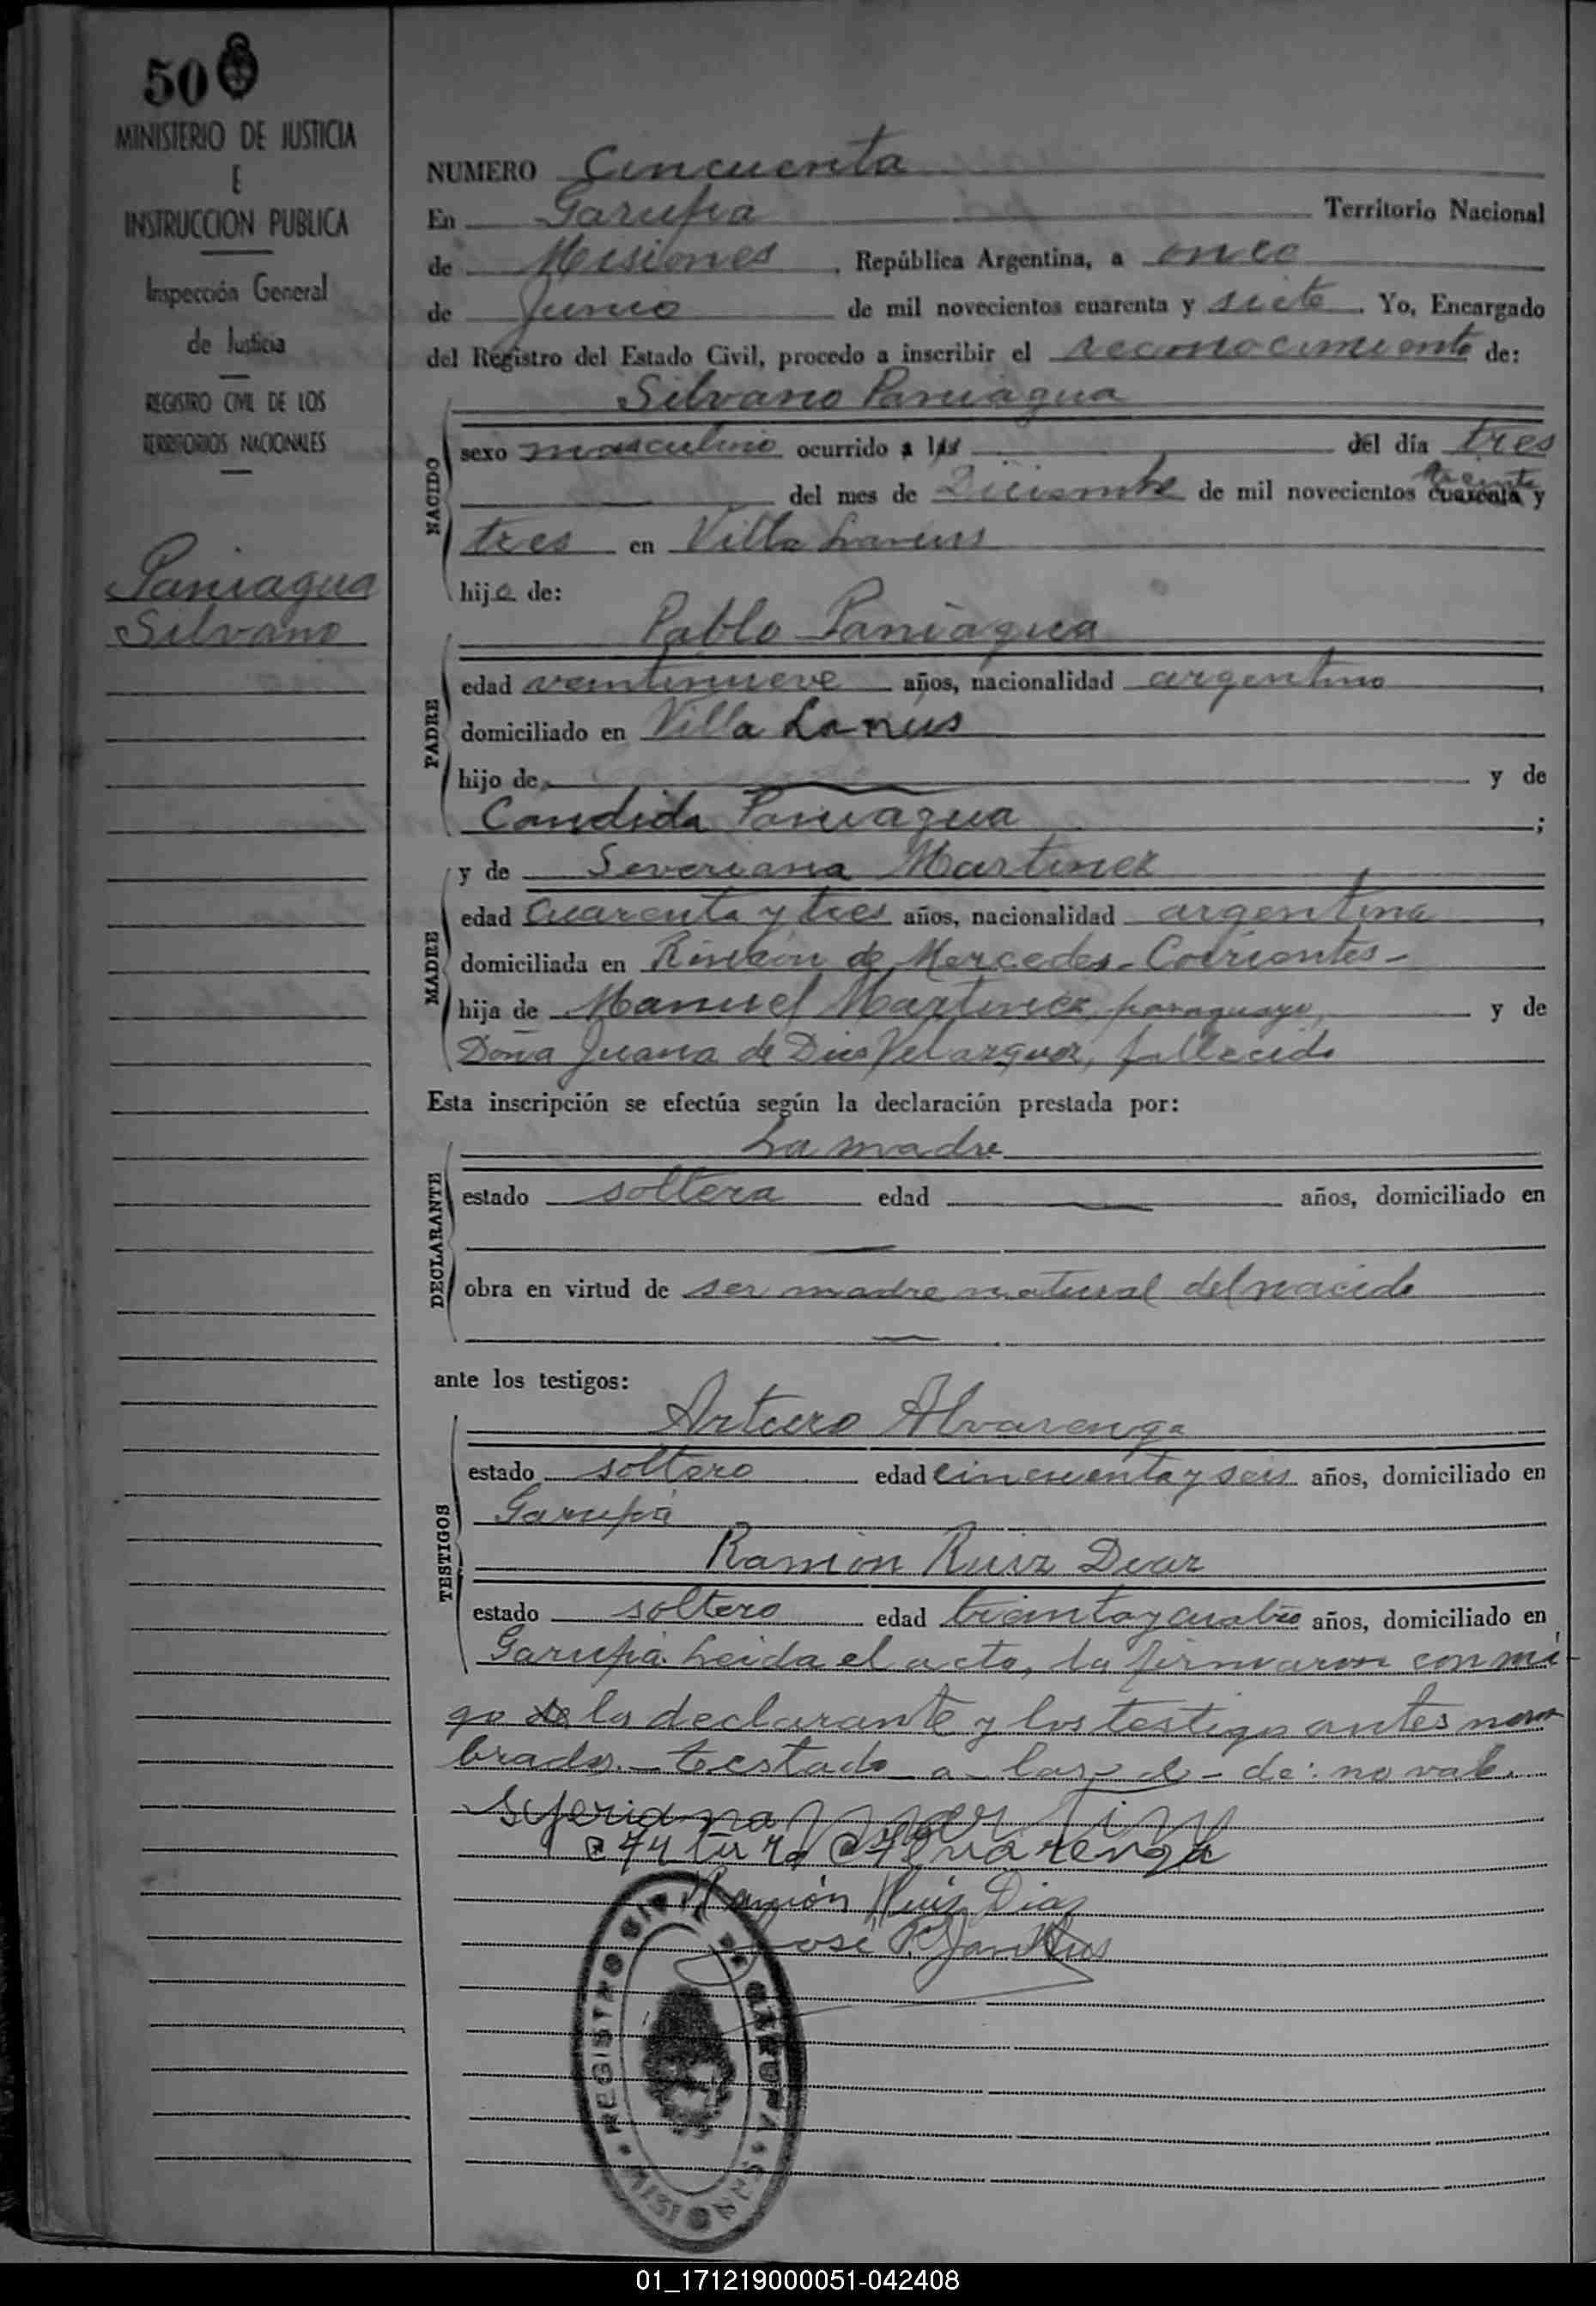 50
MINISTERIO DE JUSTICIA
E
INSTRUCCION PUBLICA
Inspección General
de Justicia
REGISTRO CIVIL DE LOS
TERRITORIOS NACIONALES
Paniagua
Silvano
NUMERO Cincuenta
En Garupá Territorio Nacional
de Misiones, República Argentina, a once
de Junio de mil novecientos cuarenta y siete. Yo, Encargado
del Registro del Estado Civil, procedo a inscribir el reconocimiento de:
Silvano Paniagua
NACIDO
sexo masculino ocurrido a las del día tres
del mes de Diciembre de mil novecientos cuarenta treinta y
tres en Villa Lanus
hijo de:
Pablo Paniagua
PADRE
edad veintinueve años, nacionalidad argentino,
domiciliado en Villa Lanus
hijo de y de
Candida Paniagua;
y de Severiana Martinez
MADRE
edad cuarenta y tres años, nacionalidad argentina,
domiciliada en Rincón de Mercedes - Corrientes -
hija de Manuel Martinez, paraguayo, y de
Doña Juana de Dios Velazquez, fallecido
Esta inscripción se efectúa según la declaración prestada por:
La madre
DECLARANTE
estado soltera edad años, domiciliado en
obra en virtud de ser madre natural del nacido
ante los testigos:
Arturo Alvarenga
TESTIGOS
estado soltero edad cincuenta y seis años, domiciliado en
Garupá
Ramón Ruiz Diaz
estado soltero edad treinta y cuatro años, domiciliado en
Garupá. Leida el acta, la firmaron conmi-
go la declarante y los testigos antes nom
brados. - testado - a - las - - de: no vale.
Seferiana
Arturo Alvarenga
Ramón Ruiz Diaz
José
REGISTRO CIVIL DE GARUPA
MISIONES
01_171219000051-042408